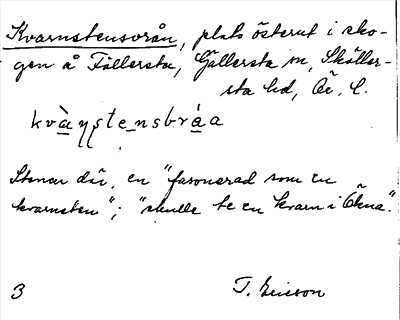 Kvarnstensvrån, plats österut i sko-
gen å Fällersta, Gällersta sn, Sköller-
sta hd, Ör. l.
Stenar där, en "fasonerad som en
kvarnsten"; "skulle te en kvarn i Ökna".
3 T. Ericson